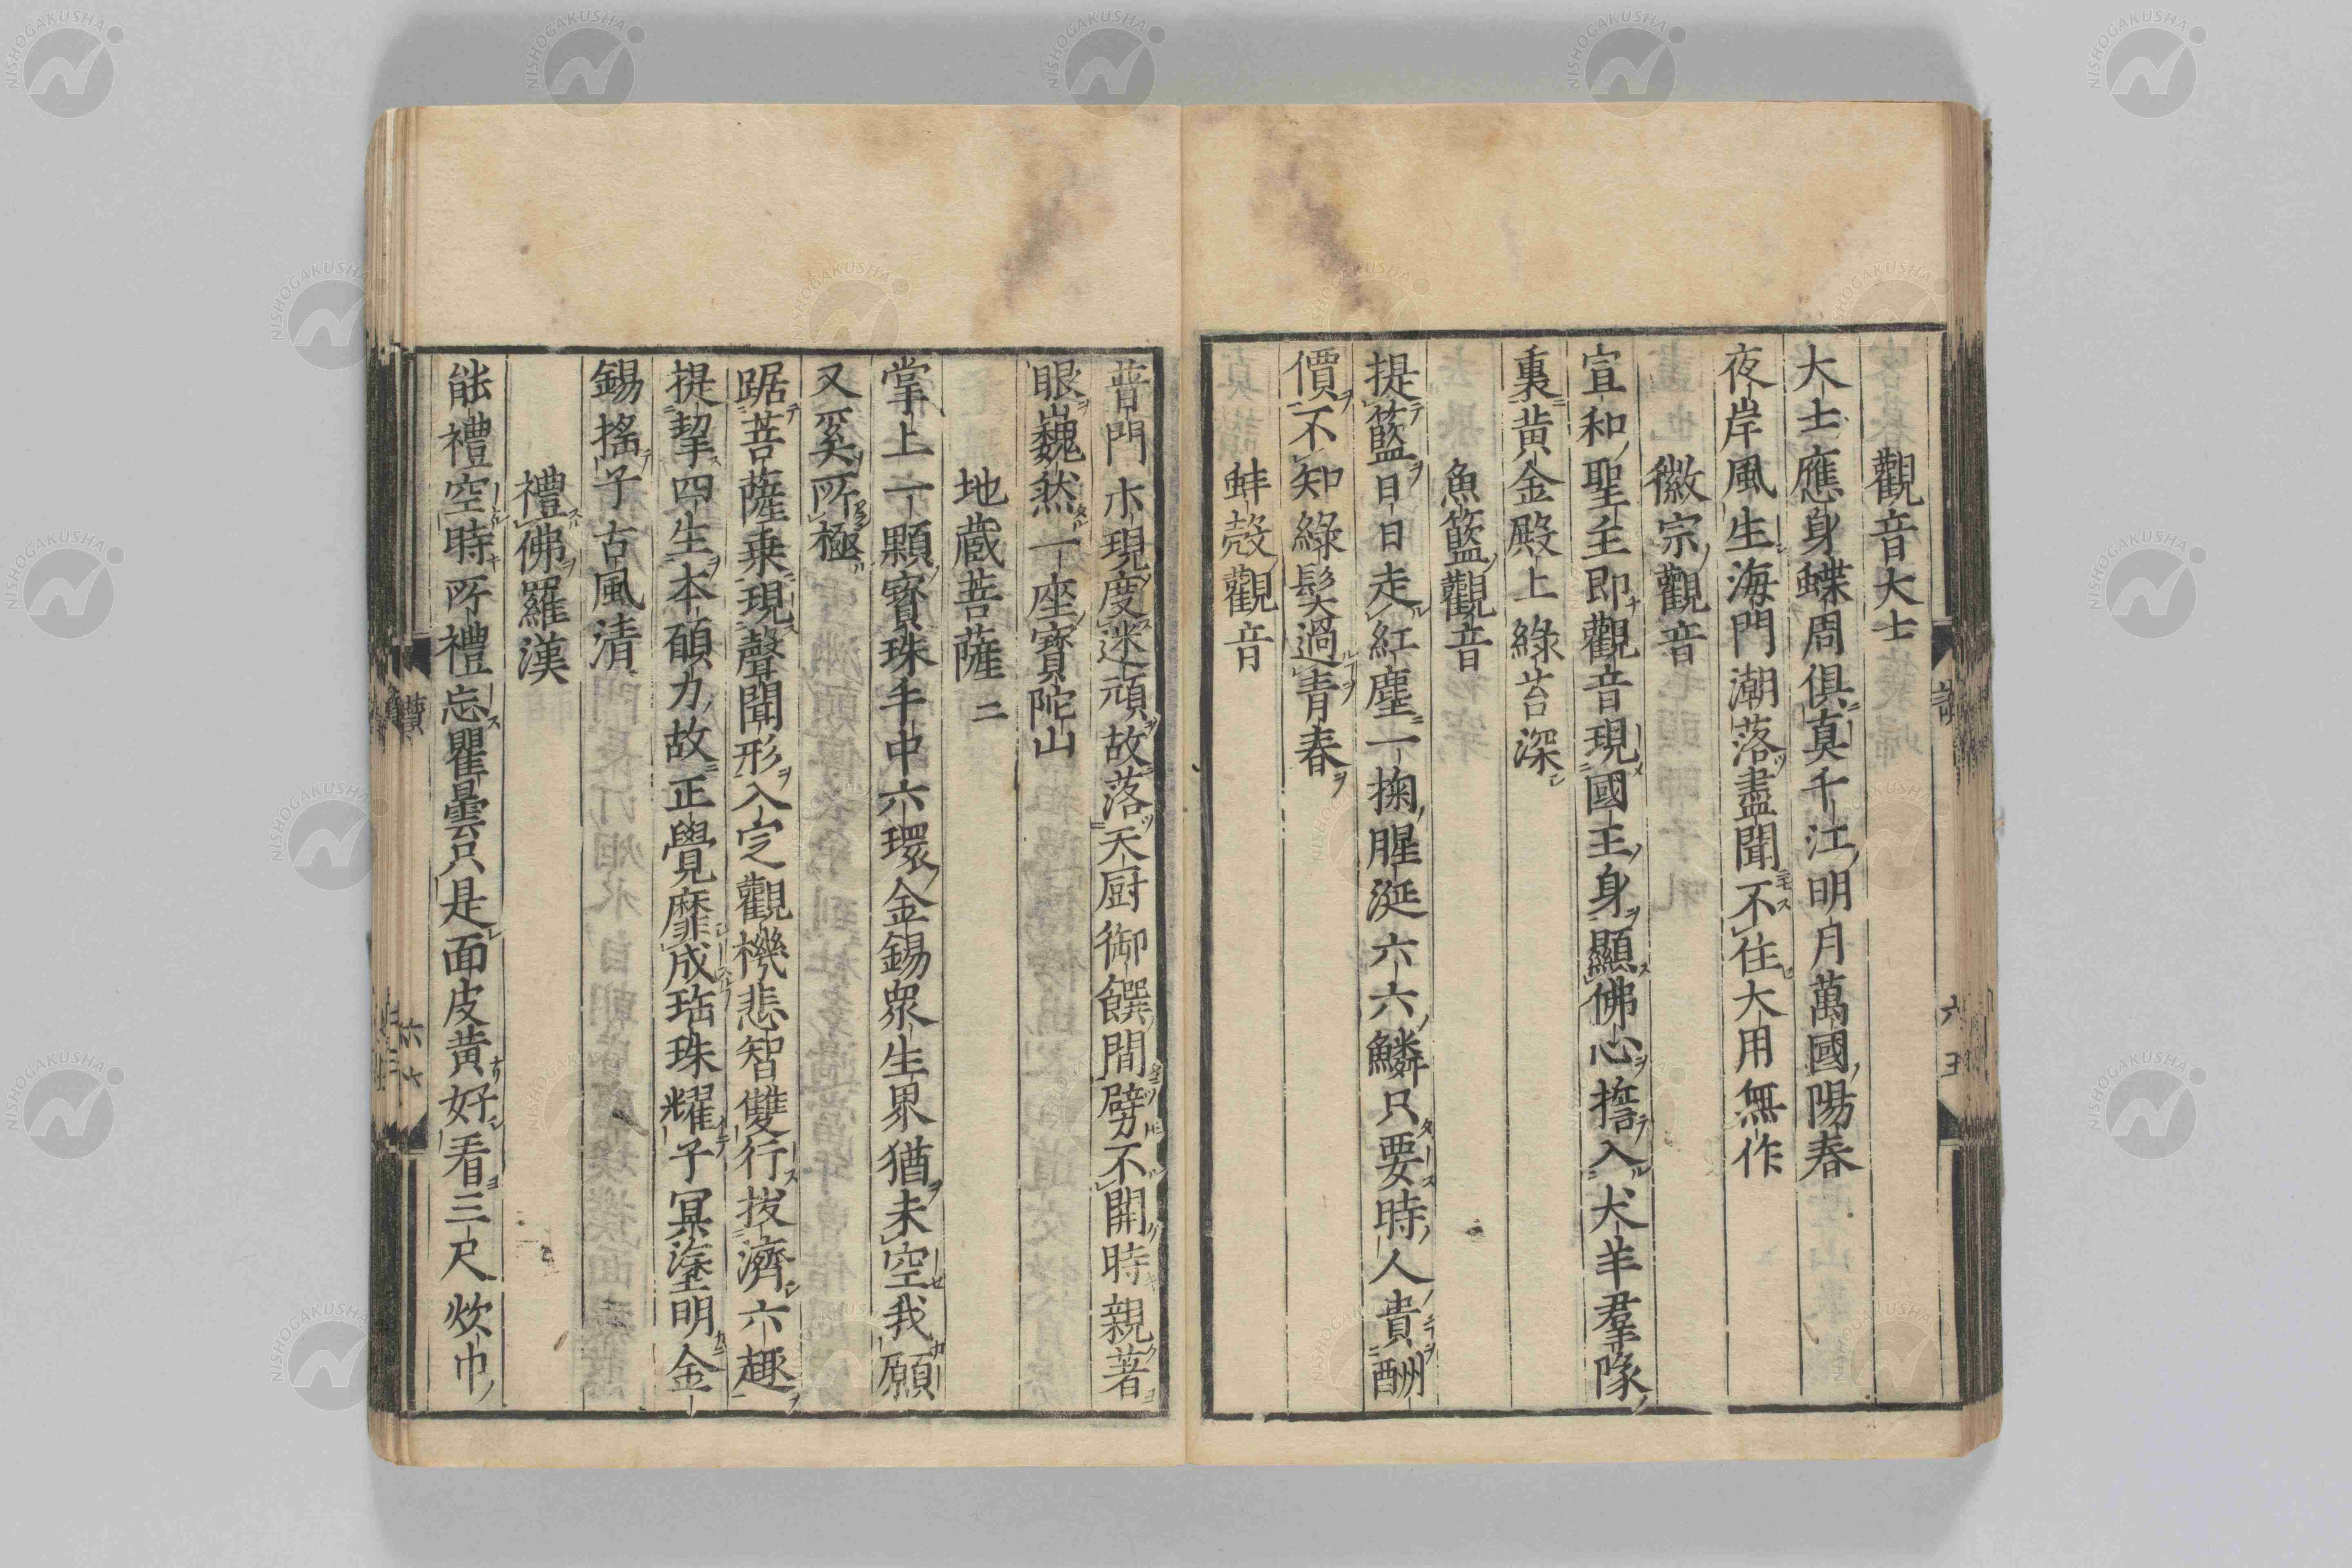 觀音大士
大士應身蝶周俱真千江明月萬國陽春
夜岸風生海門潮落盡聞不住大用無作
徽宗觀音
宣和聖主即觀音現國王身顯佛心擔入犬羊羣隊
裏黄金殿上綠苔深
魚籃觀音
提籃日日走紅塵一掬腥涎六六鱗只要時人貴酬
價不知綠髮過青春
蚌殼觀音
普門示現度迷頑故落天厨御饌間劈不開時親著
眼巍然一座寶陀山
地蔵菩薩二
掌上一顆寶珠手中六環金錫衆生界猶未空我願
又奚所極
踞菩薩乗現聲聞形入定觀機悲智雙行拔濟六趣
提挈四生本願力故正覺靡成珤珠耀子冥塗明金
錫搖子古風清
禮佛羅漢
能禮空時所禮忘瞿曇只是面皮黄好看三尺炊巾
六五
六六
NISHOGAKUSHA